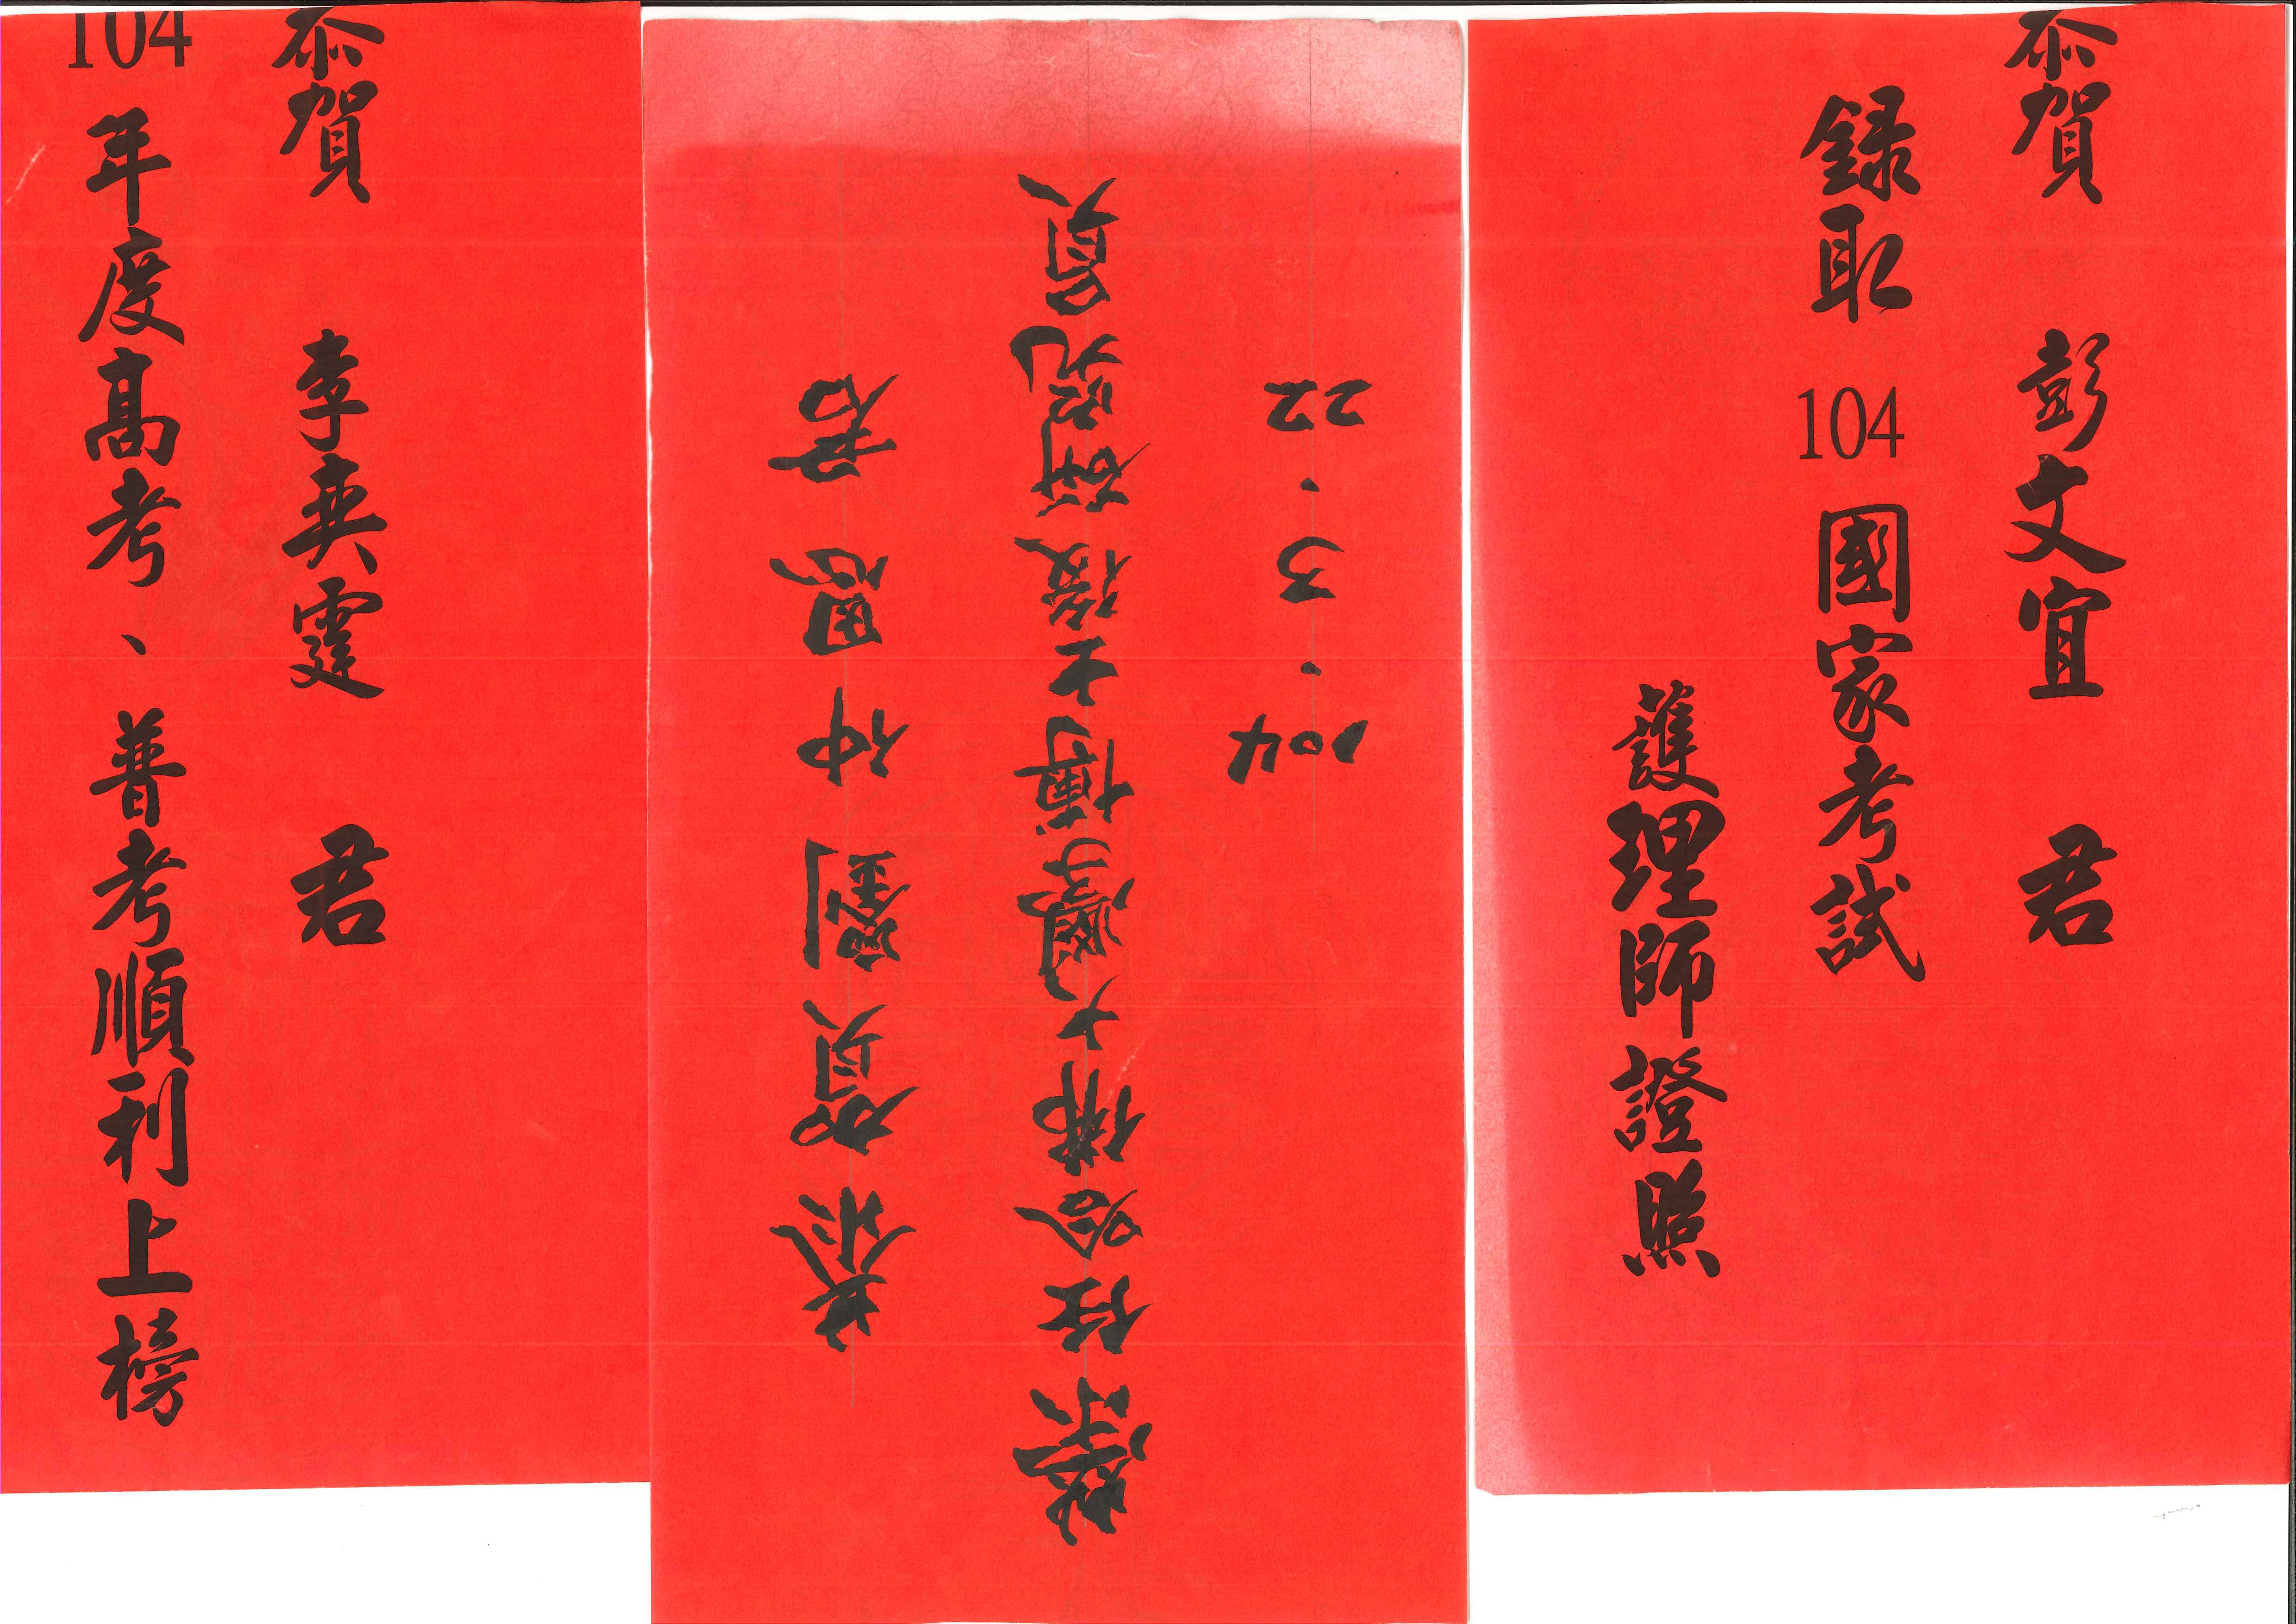 恭賀 李奕霆 君
104年度高考、普考順利上榜
恭賀劉仲恩君
榮任哈佛大學博士後研究員
104.3.22
恭賀 彭文宜 君
錄取104國家考試
護理師證照